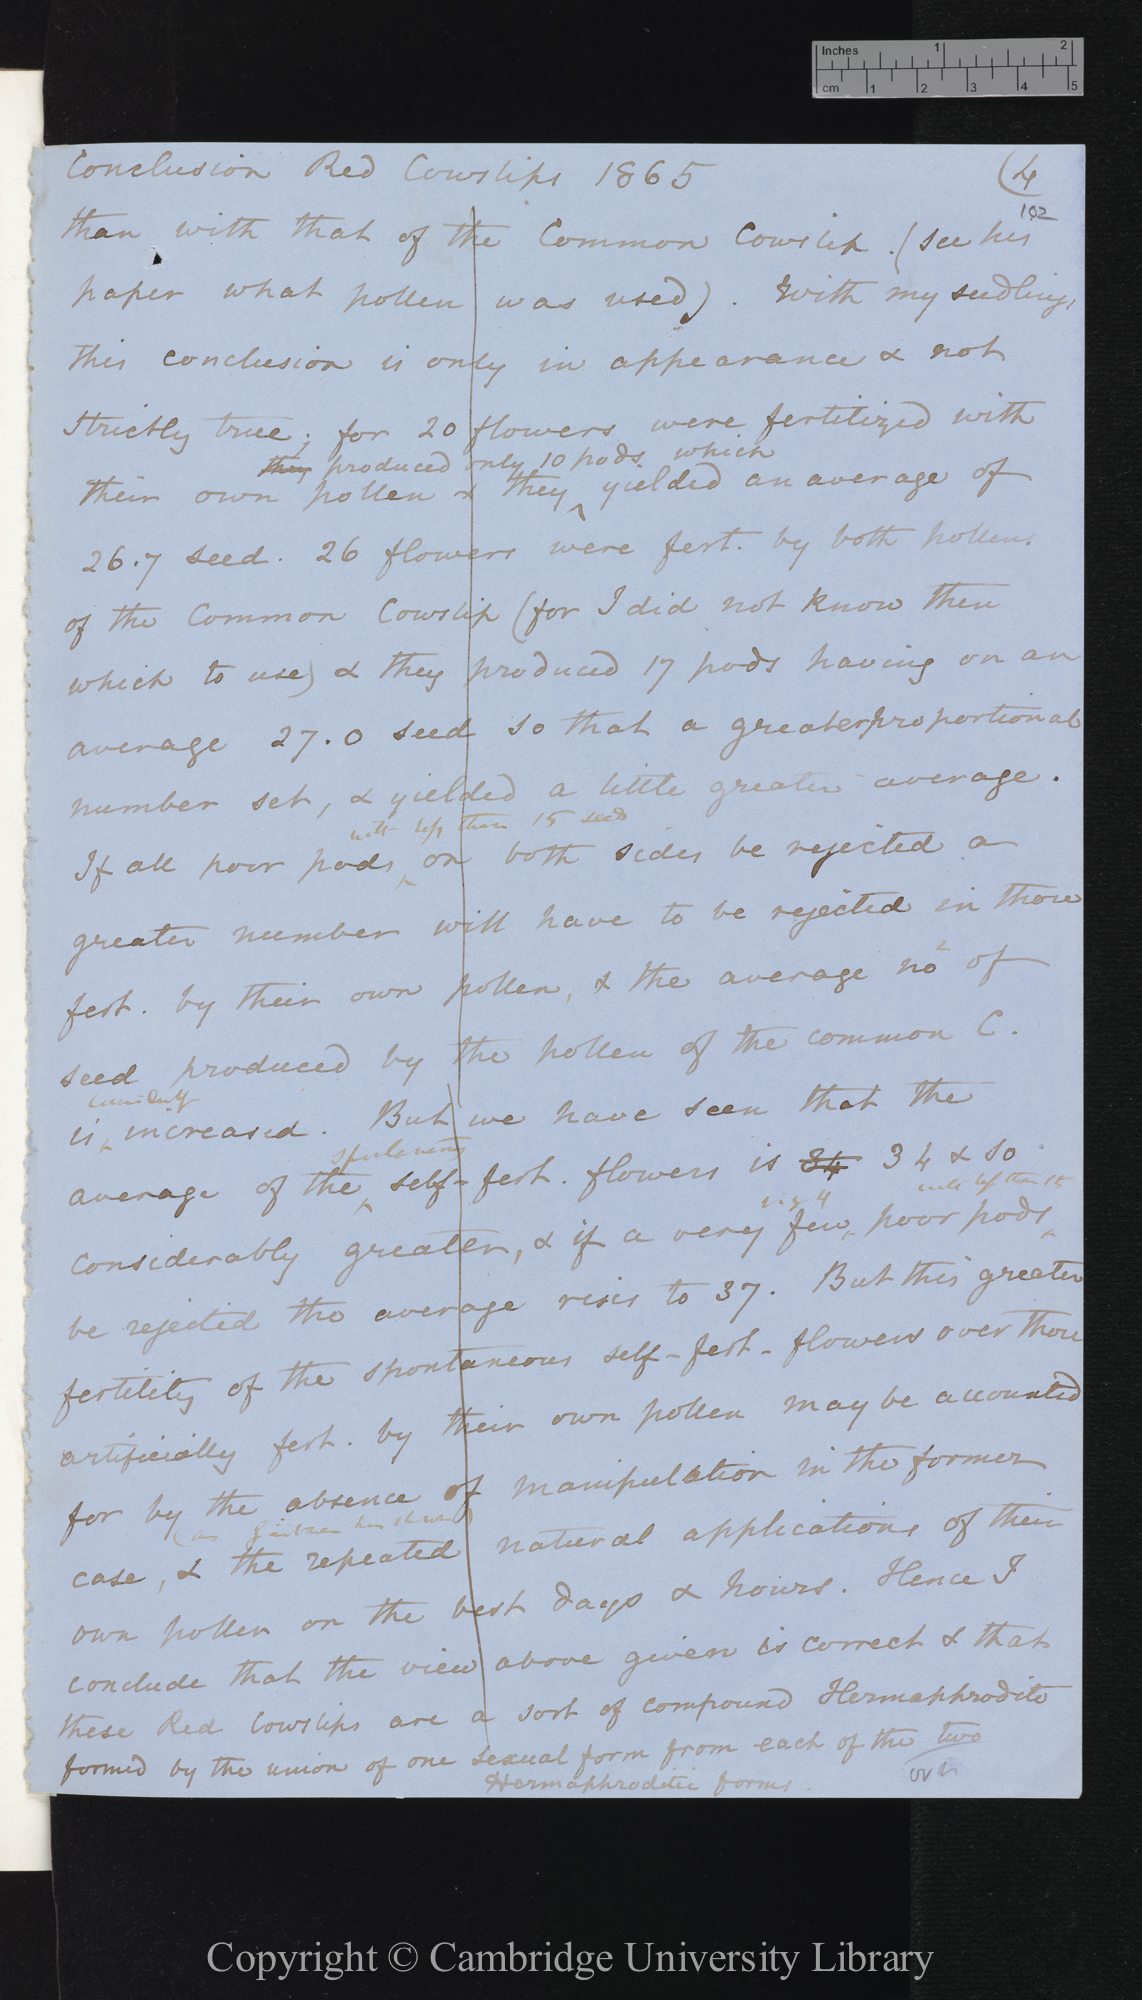 Inches 1 2
cm 1 2 3 4 5
Conclusion Red Cowslips 1865 (4
102
than with that of the Common Cowslip. (see his
paper what pollen was used). With my seedlings
this conclusion is only in appearance & not
strictly true; for 20 flowers were fertilized with
they produced only 10 pods which
their own pollen & they yielded an average of
26.7 seed. 26 flowers were fert. by both pollens
of the Common Cowslip (for I did not know then
which to use) & they produced 17 pods having on an
average 27.0 seed so that a greater proportional
number set, & yielded a little greater average.
with less than 15 seeds
If all poor pods on both sides be rejected a
greater number will have to be rejected in those
fert. by their own pollen, & the average no of
seed produced by the pollen of the common C.
evidently
is increased. But we have seen that the
spontaneous
average of the self-fert. flowers is 34 34 & so
with less than 15
considerably greater, & if a very few poor pods
be rejected the average rises to 37. But this greater
fertility of the spontaneous self-fert. flowers over those
artificially fert. by their own pollen may be accounted
for by the absence of manipulation in the former
(as Gärtner has shown)
case, & the repeated natural applications of their
own pollen on the best days & hours. Hence I
conclude that the view above given is correct & that
these Red Cowslips are a sort of compound Hermaphrodite
formed by the union of one sexual form from each of the two
Hermaphroditic forms. over
Copyright © Cambridge University Library